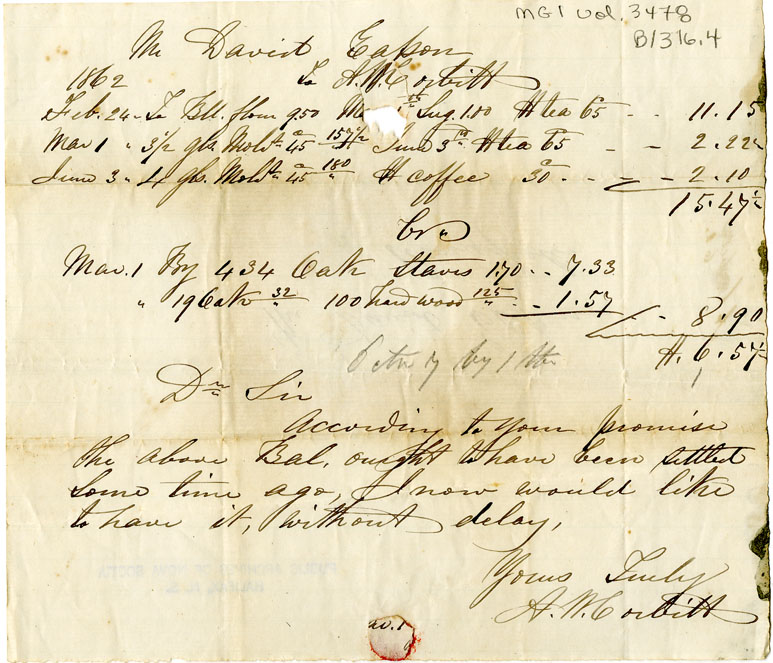 MG1 Vol. 3478
B1316.4
Mr David Eason
1862 To A. W. Corbitt
Feb. 24 - To Bll. flour 9.50 Sug. 1.00 tea 65 - - 11.15
Mar 1 " 3 1/2 gls. Mols. @ 45 157 1/2 June 3rd tea 65 - - 2.22 1/2
June 3 " 4 gls. Mols. @ 45 180 coffee 30 - - - 2.10
15.47 1/2
Cr
Mar. 1 By 434 Oak Staves 1.70 - - 7.33
" 19 Oak 32 100 hard wood 125 - 1.57
- 8.90
6.57 1/2
Dr Sir
According to your promise
the above Bal. ought to have been settled
some time ago, I now would like
to have it, without delay,
Yours Truly
A. W. Corbitt
PUBLIC ARCHIVES OF NOVA SCOTIA
HALIFAX, N. S.
no. 1